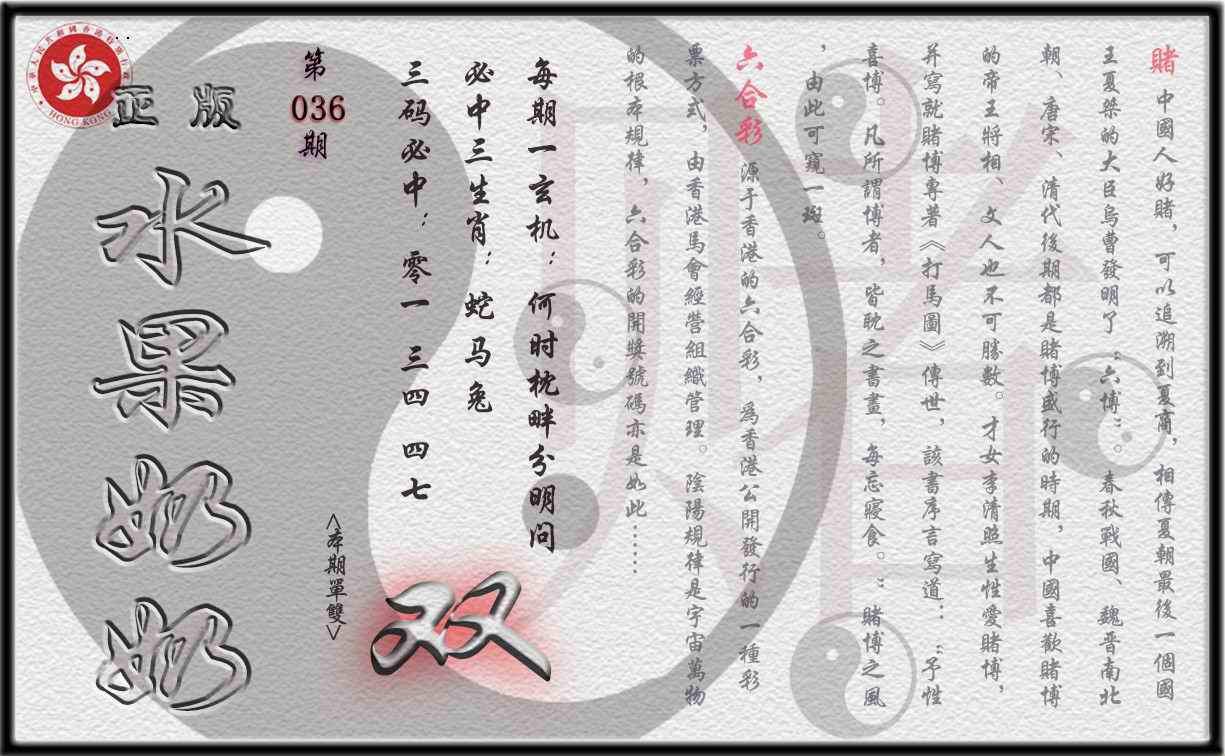 賭 中國人好賭，可以追溯到夏商，相傳夏朝最後一個國
王夏桀的大臣烏曹發明了“六博”。春秋戰國、魏晋南北
朝、唐宋、清代後期都是賭博盛行的時期，中國喜歡賭博
的帝王將相、文人也不可勝數。才女李清照生性愛賭博，
并寫就賭博專著《打馬圖》傳世，該書序言寫道：“予性
喜博。凡所謂博者，皆耽之書畫，每忘寢食。”賭博之風
，由此可窺一斑。
六合彩 源于香港的六合彩，爲香港公開發行的一種彩
票方式，由香港馬會經營組織管理。陰陽規律是宇宙萬物
的根本規律，六合彩的開獎號碼亦是如此……
每期一玄机：何时枕畔分明问
必中三生肖：蛇马兔
三码必中：零一 三四 四七
双
<本期單雙>
第
036
期
正版
水果奶奶
中華人民共和國香港特別行政區
HONG KONG